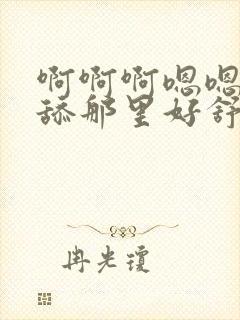 啊啊啊嗯嗯
舔那里好舒
冉光琼